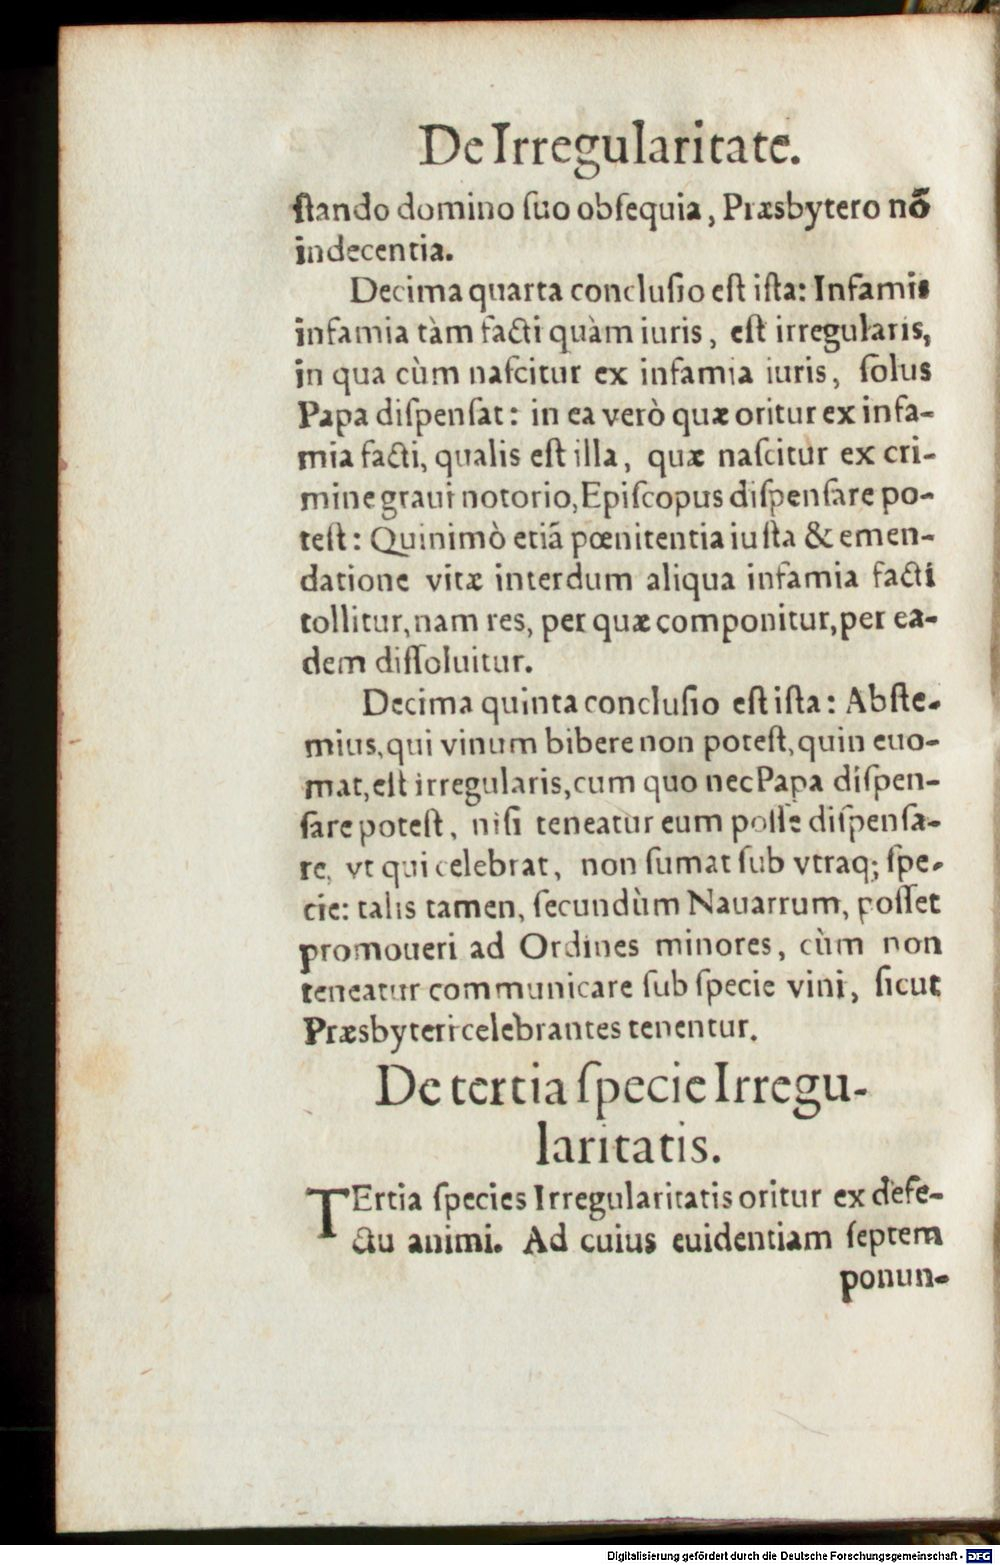 De Irregularitate.
ſtando domino ſuo obſequia, Præsbytero nõ
indecentia.
Decima quarta concluſio eſt iſta: Infamis
infamia tàm facti quàm iuris, eſt irregularis,
in qua cùm naſcitur ex infamia iuris, ſolus
Papa diſpenſat: in ea verò quæ oritur ex infa-
mia facti, qualis eſt illa, quæ naſcitur ex cri-
mine graui notorio, Epiſcopus diſpenſare po-
teſt: Quinimò etiã pœnitentia iuſta & emen-
datione vitæ interdum aliqua infamia facti
tollitur, nam res, per quæ componitur, per ea-
dem diſſoluitur.
Decima quinta concluſio eſt iſta: Abſte-
mius, qui vinum bibere non poteſt, quin euo-
mat, eſt irregularis, cum quo nec Papa diſpen-
ſare poteſt, niſi teneatur eum poſſe diſpenſa-
re, vt qui celebrat, non ſumat ſub vtraq; ſpe-
cie: talis tamen, ſecundùm Nauarrum, poſſet
promoueri ad Ordines minores, cùm non
teneatur communicare ſub ſpecie vini, ſicut
Præsbyteri celebrantes tenentur.
De tertia ſpecie Irregu-
laritatis.
TErtia ſpecies Irregularitatis oritur ex defe-
ctu animi. Ad cuius euidentiam ſeptem
ponun-
Digitalisierung gefördert durch die Deutsche Forschungsgemeinschaft - DFG